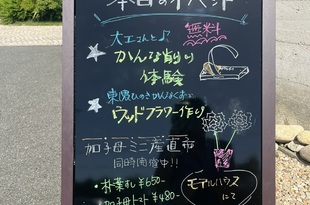 本日のイベント
大工さんと♪
無料
かんな削り
体験
東濃ひのきかんなくずで
ウッドフラワー作り
加子母ミニ産直市
同時開催中!!
・朴葉すし ¥650-
・加子母トマト ¥480-
モデルハウス
にて